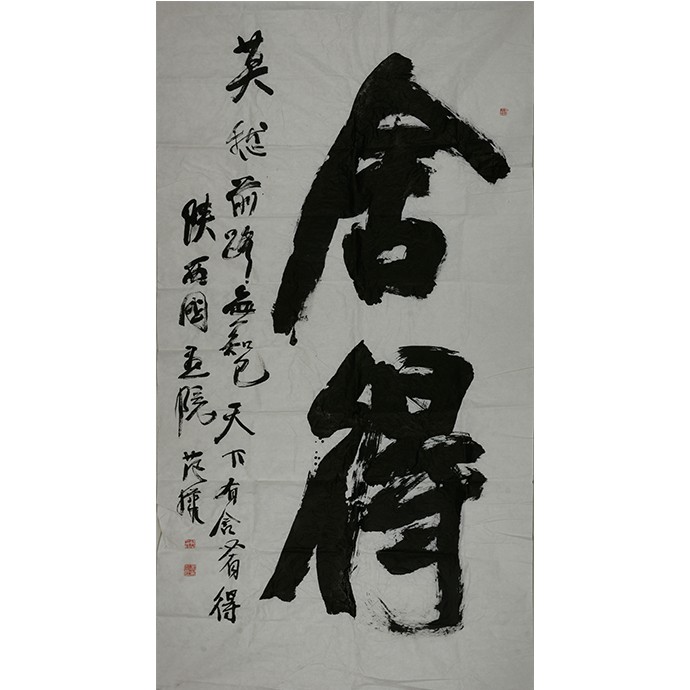 舍得
莫愁前路無知己天下有舍得
陕西國画院 范